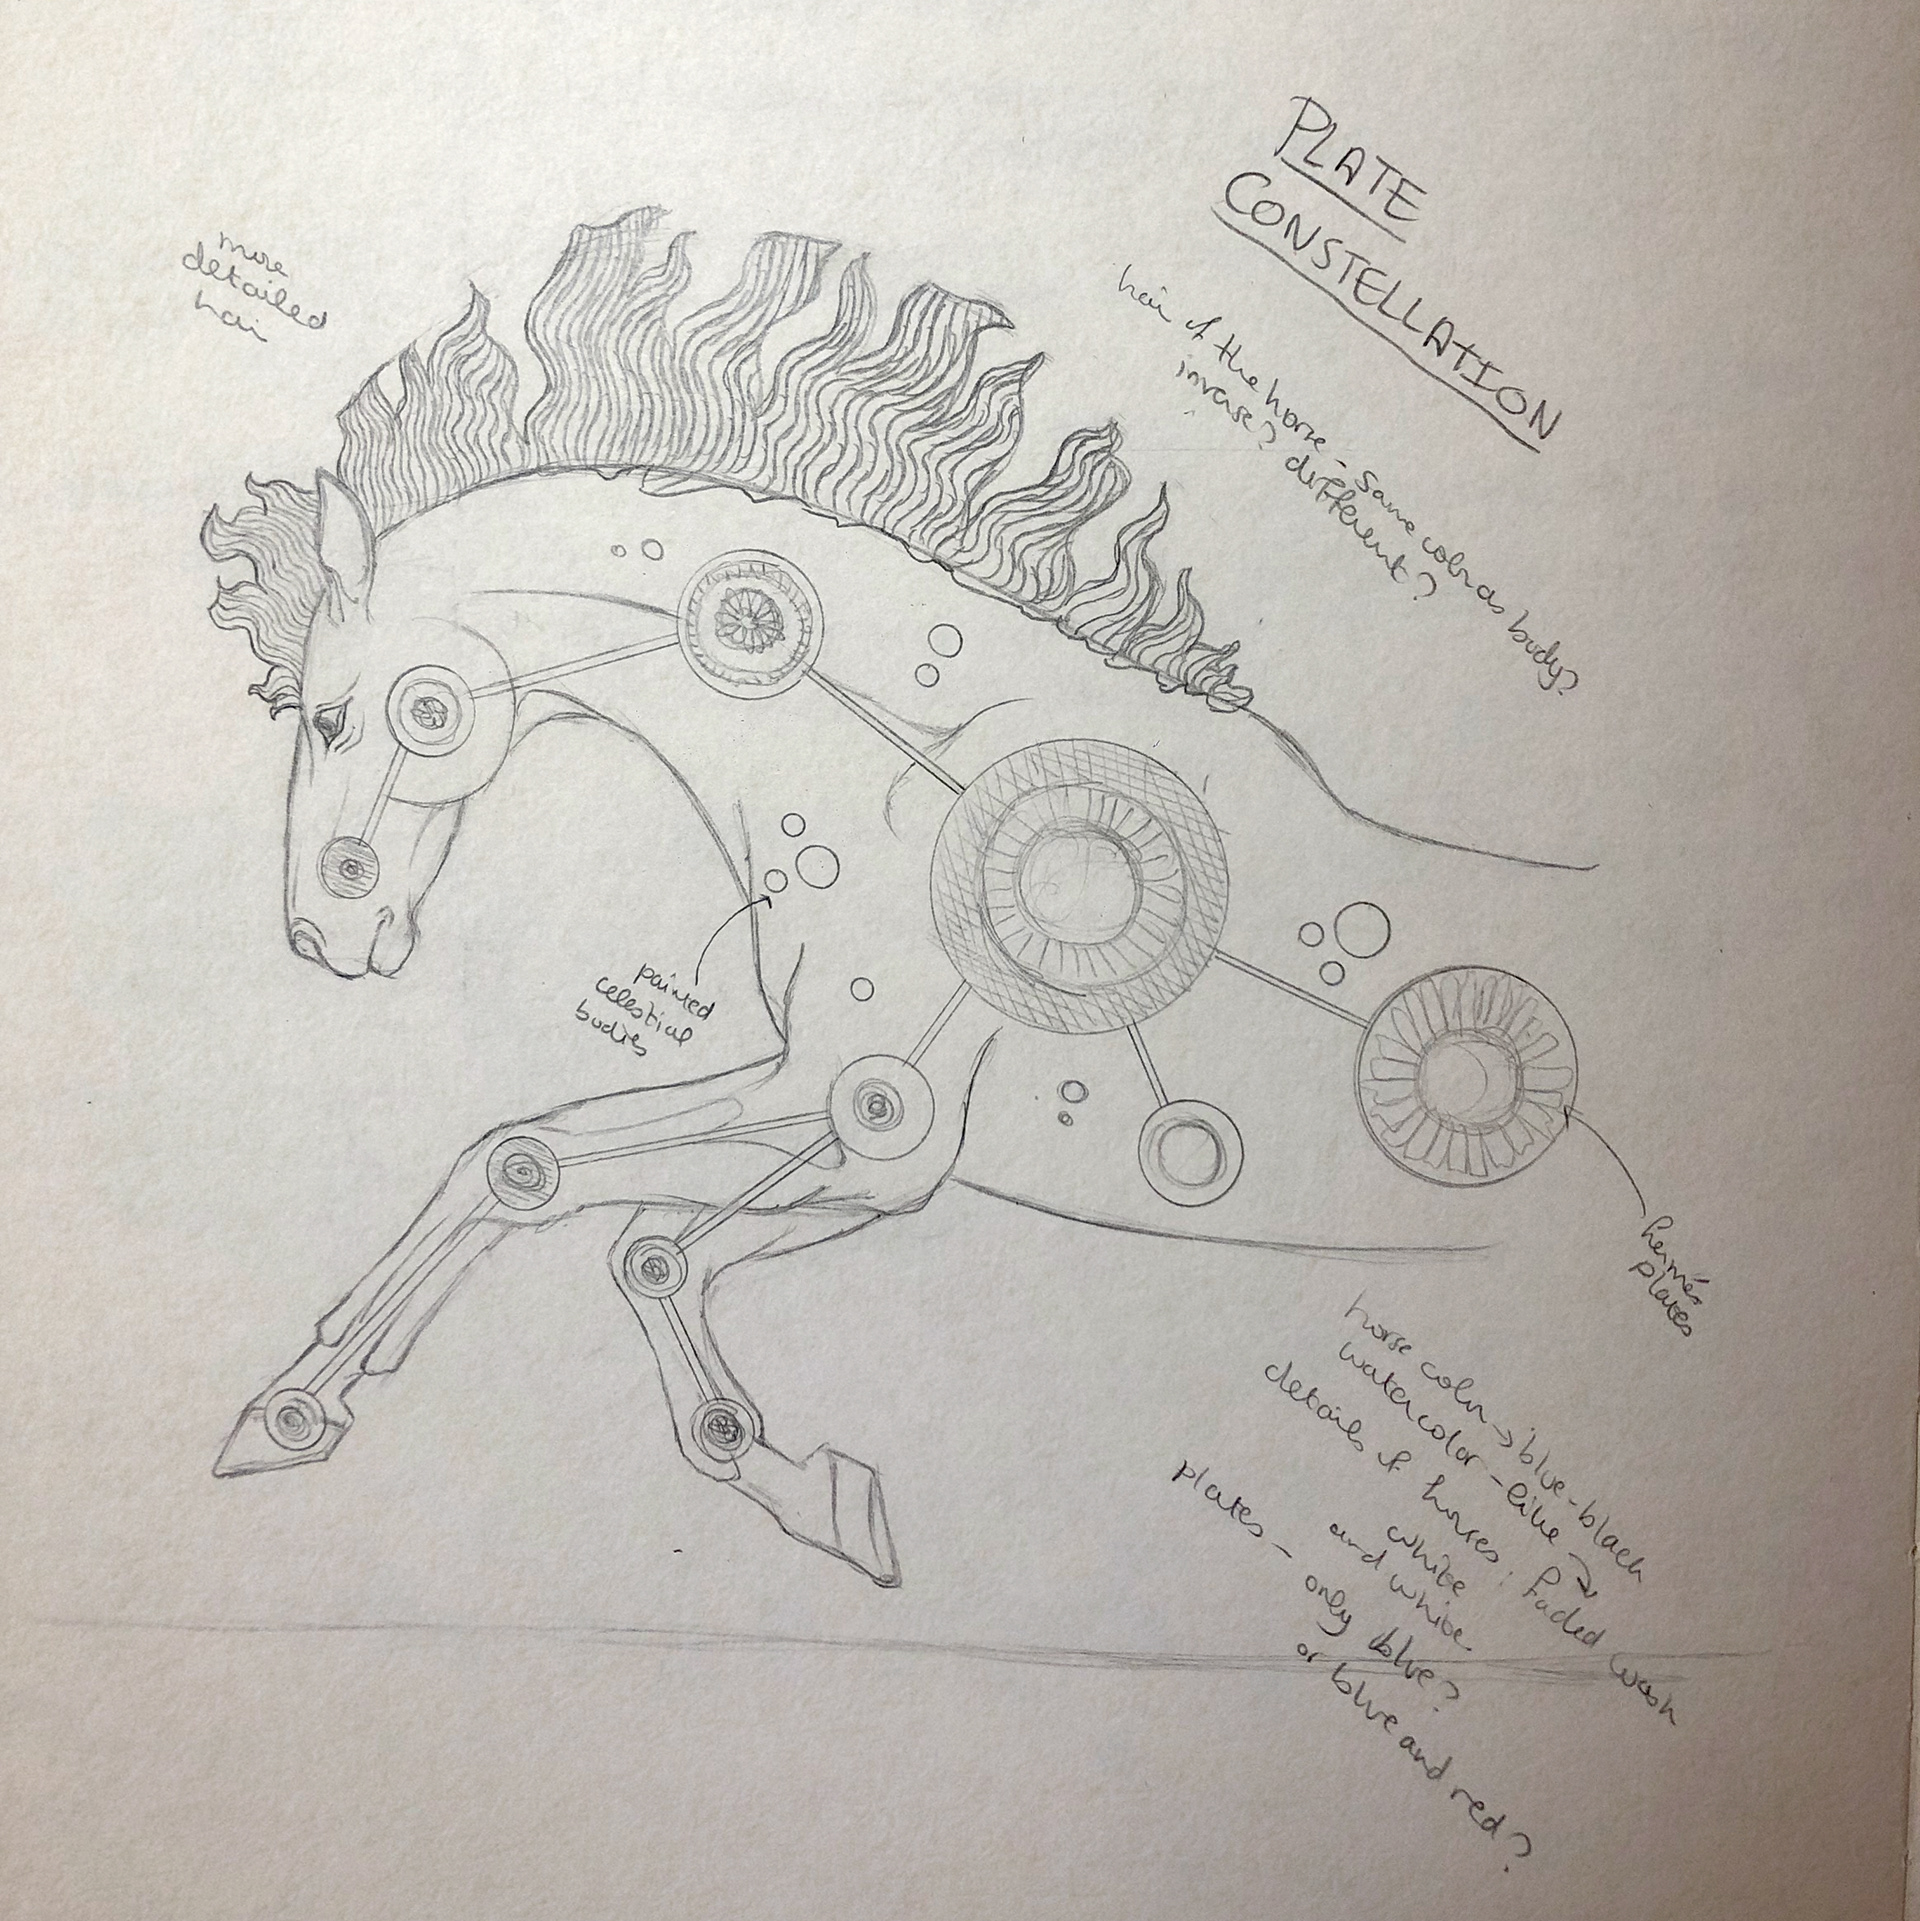 PLATE
CONSTELLATION
more
detailed
hair
hair of the horse - same color as body?
inverse? different?
painted
celestial
bodies
hermés
plates
horse color → blue-black
watercolor-like → faded wash
details of horses: white
and white
plates - only blue?
or blue and red?